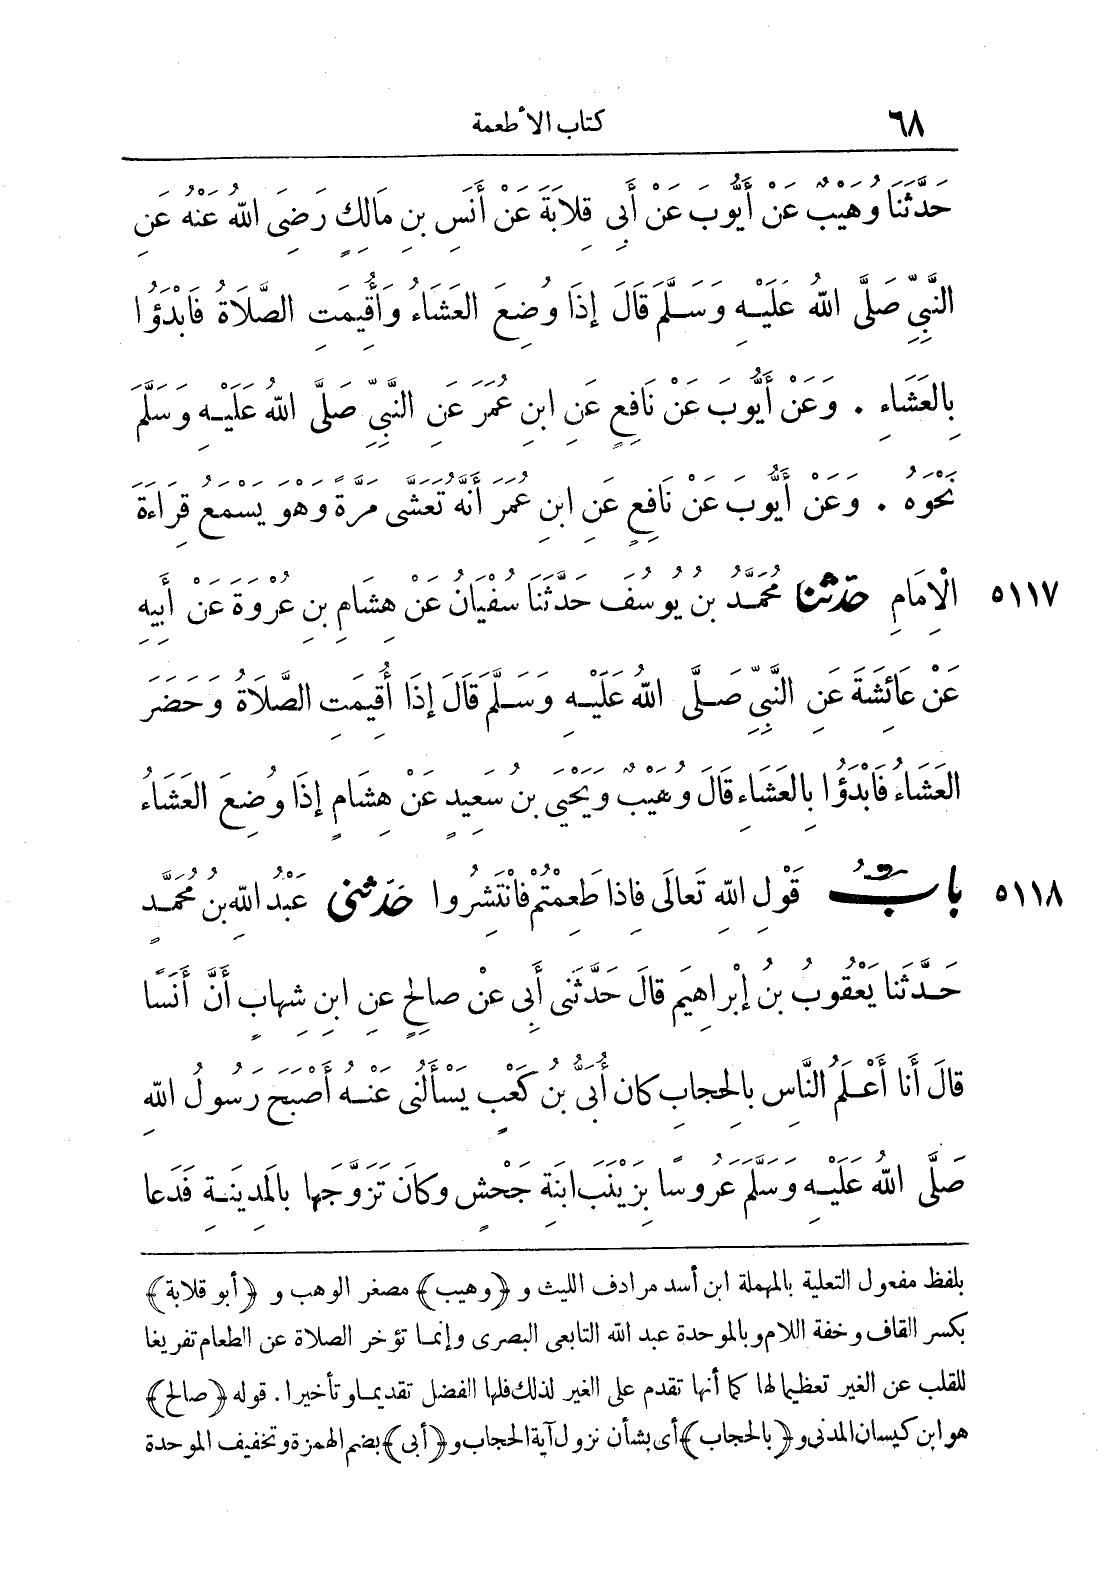 ٦٨ كتاب الأطعمة
حَدَّثَنَا وُهَيْبٌ عَنْ أَيُّوبَ عَنْ أَبِي قِلَابَةَ عَنْ أَنَسِ بنِ مَالِكٍ رَضِىَ اللهُ عَنْهُ عَنِ
النَّبِيِّ صَلَّى اللهُ عَلَيْهِ وَسَلَّمَ قَالَ إِذَا وُضِعَ العَشَاءُ وَأُقِيمَتِ الصَّلَاةُ فَابْدَؤُا
بِالعَشَاءِ . وَعَنْ أَيُّوبَ عَنْ نَافِعٍ عَنِ ابنِ عُمَرَ عَنِ النَّبِيِّ صَلَّى اللهُ عَلَيْهِ وَسَلَّمَ
نَحْوَهُ . وَعَنْ أَيُّوبَ عَنْ نَافِعٍ عَنِ ابنِ عُمَرَ أَنَّهُ تَعَشَّى مَرَّةً وَهْوَ يَسْمَعُ قِرَاءَةَ
٥١١٧ الْإِمَامِ حَدَّثَنَا مُحَمَّدُ بنُ يُوسُفَ حَدَّثَنَا سُفْيَانُ عَنْ هِشَامِ بنِ عُرْوَةَ عَنْ أَبِيهِ
عَنْ عَائِشَةَ عَنِ النَّبِيِّ صَلَّى اللهُ عَلَيْهِ وَسَلَّمَ قَالَ إِذَا أُقِيمَتِ الصَّلَاةُ وَحَضَرَ
العَشَاءُ فَابْدَؤُا بِالعَشَاءِ قَالَ وُهَيْبٌ وَيَحْيَى بنُ سَعِيدٍ عَنْ هِشَامٍ إِذَا وُضِعَ العَشَاءُ
٥١١٨ بابُ قَوْلِ اللهِ تَعَالَى فاذا طَعِمْتُمْ فانْتَشِرُوا حَدَّثَنِى عَبْدُ اللهِ بنُ مُحَمَّدٍ
حَدَّثَنا يَعْقُوبُ بنُ إِبْراهِيمَ قالَ حَدَّثَنى أَبِى عنْ صالِحٍ عنِ ابنِ شِهابٍ أَنَّ أَنَسًا
قالَ أَنا أَعْلَمُ النَّاسِ بِالحِجابِ كان أُبَىُّ بنُ كَعْبٍ يَسْأَلُنى عَنْهُ أَصْبَحَ رَسُولُ اللهِ
صَلَّى اللهُ عَلَيْهِ وَسَلَّمَ عَرُوسًا بِزَيْنَبَ ابنَةِ جَحْشٍ وكانَ تَزَوَّجَها بِالمَدِينَةِ فَدَعا
بلفظ مفعول التعلية بالمهملة ابن أسد مرادف الليث و ﴿وهيب﴾ مصغر الوهب و ﴿أبو قلابة﴾
بكسر القاف وخفة اللام وبالموحدة عبد الله التابعى البصرى وإنما تؤخر الصلاة عن الطعام تفريغا
للقلب عن الغير تعظيما لها كما أنها تقدم على الغير لذلك فلها الفضل تقديما وتأخيرا . قوله ﴿صالح﴾
هو ابن كيسان المدنى و ﴿بالحجاب﴾ أى بشأن نزول آية الحجاب و ﴿أبى﴾ بضم الهمزة وتخفيف الموحدة